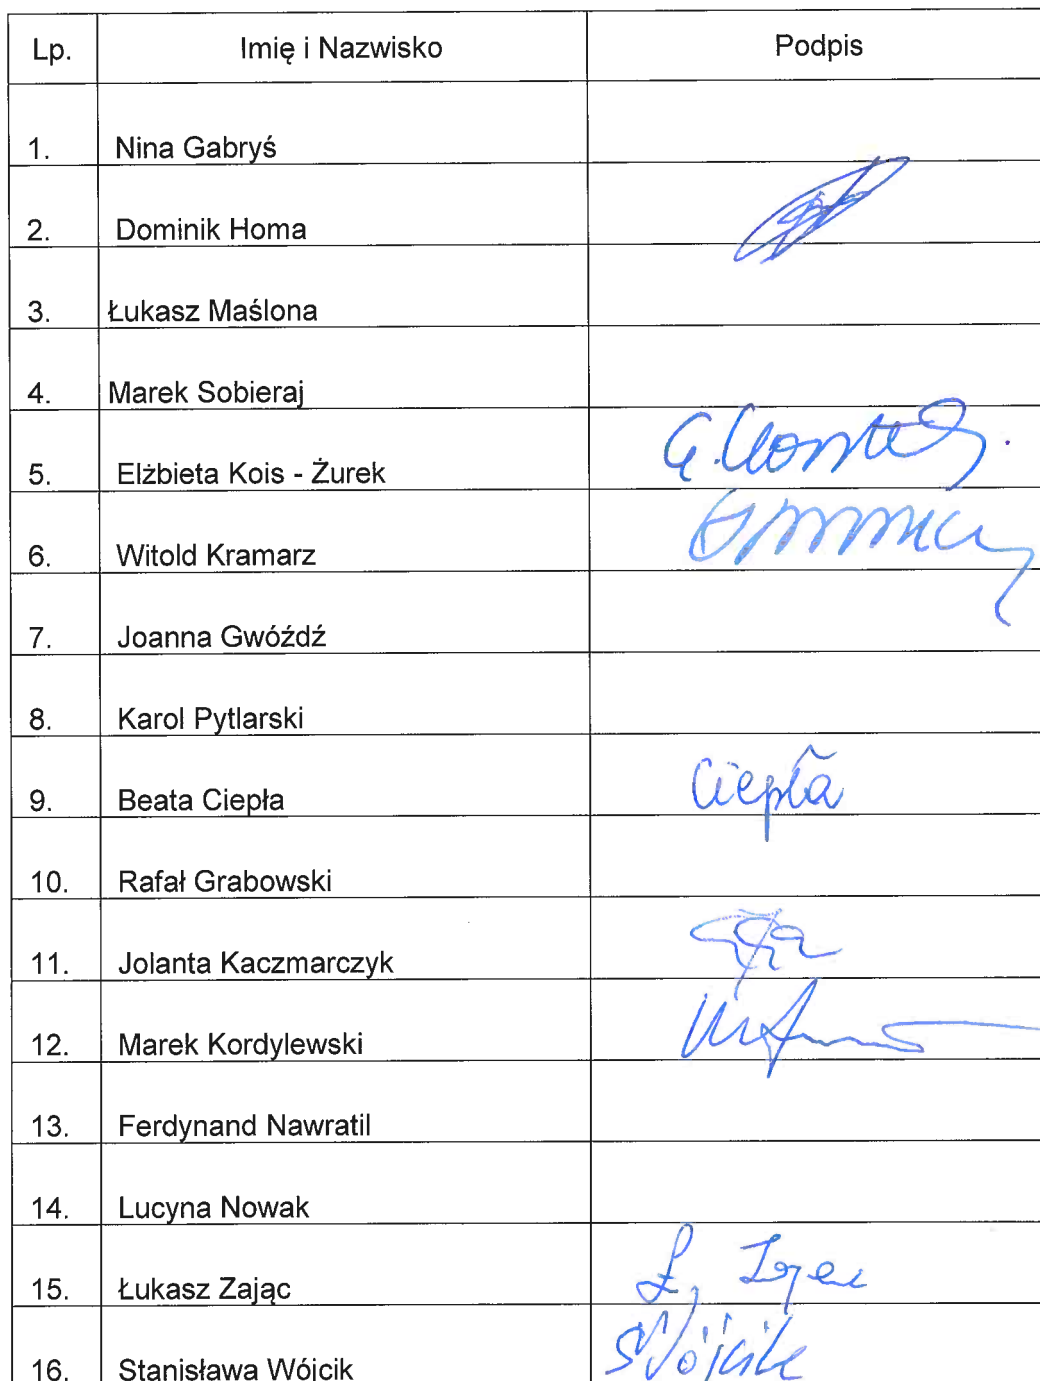 Lp. Imię i Nazwisko Podpis
1. Nina Gabryś
2. Dominik Homa
3. Łukasz Maślona
4. Marek Sobieraj
5. Elżbieta Kois - Żurek
6. Witold Kramarz
7. Joanna Gwóźdź
8. Karol Pytlarski
9. Beata Ciepła Ciepła
10. Rafał Grabowski
11. Jolanta Kaczmarczyk
12. Marek Kordylewski
13. Ferdynand Nawratil
14. Lucyna Nowak
15. Łukasz Zając
16. Stanisława Wójcik SWójcik